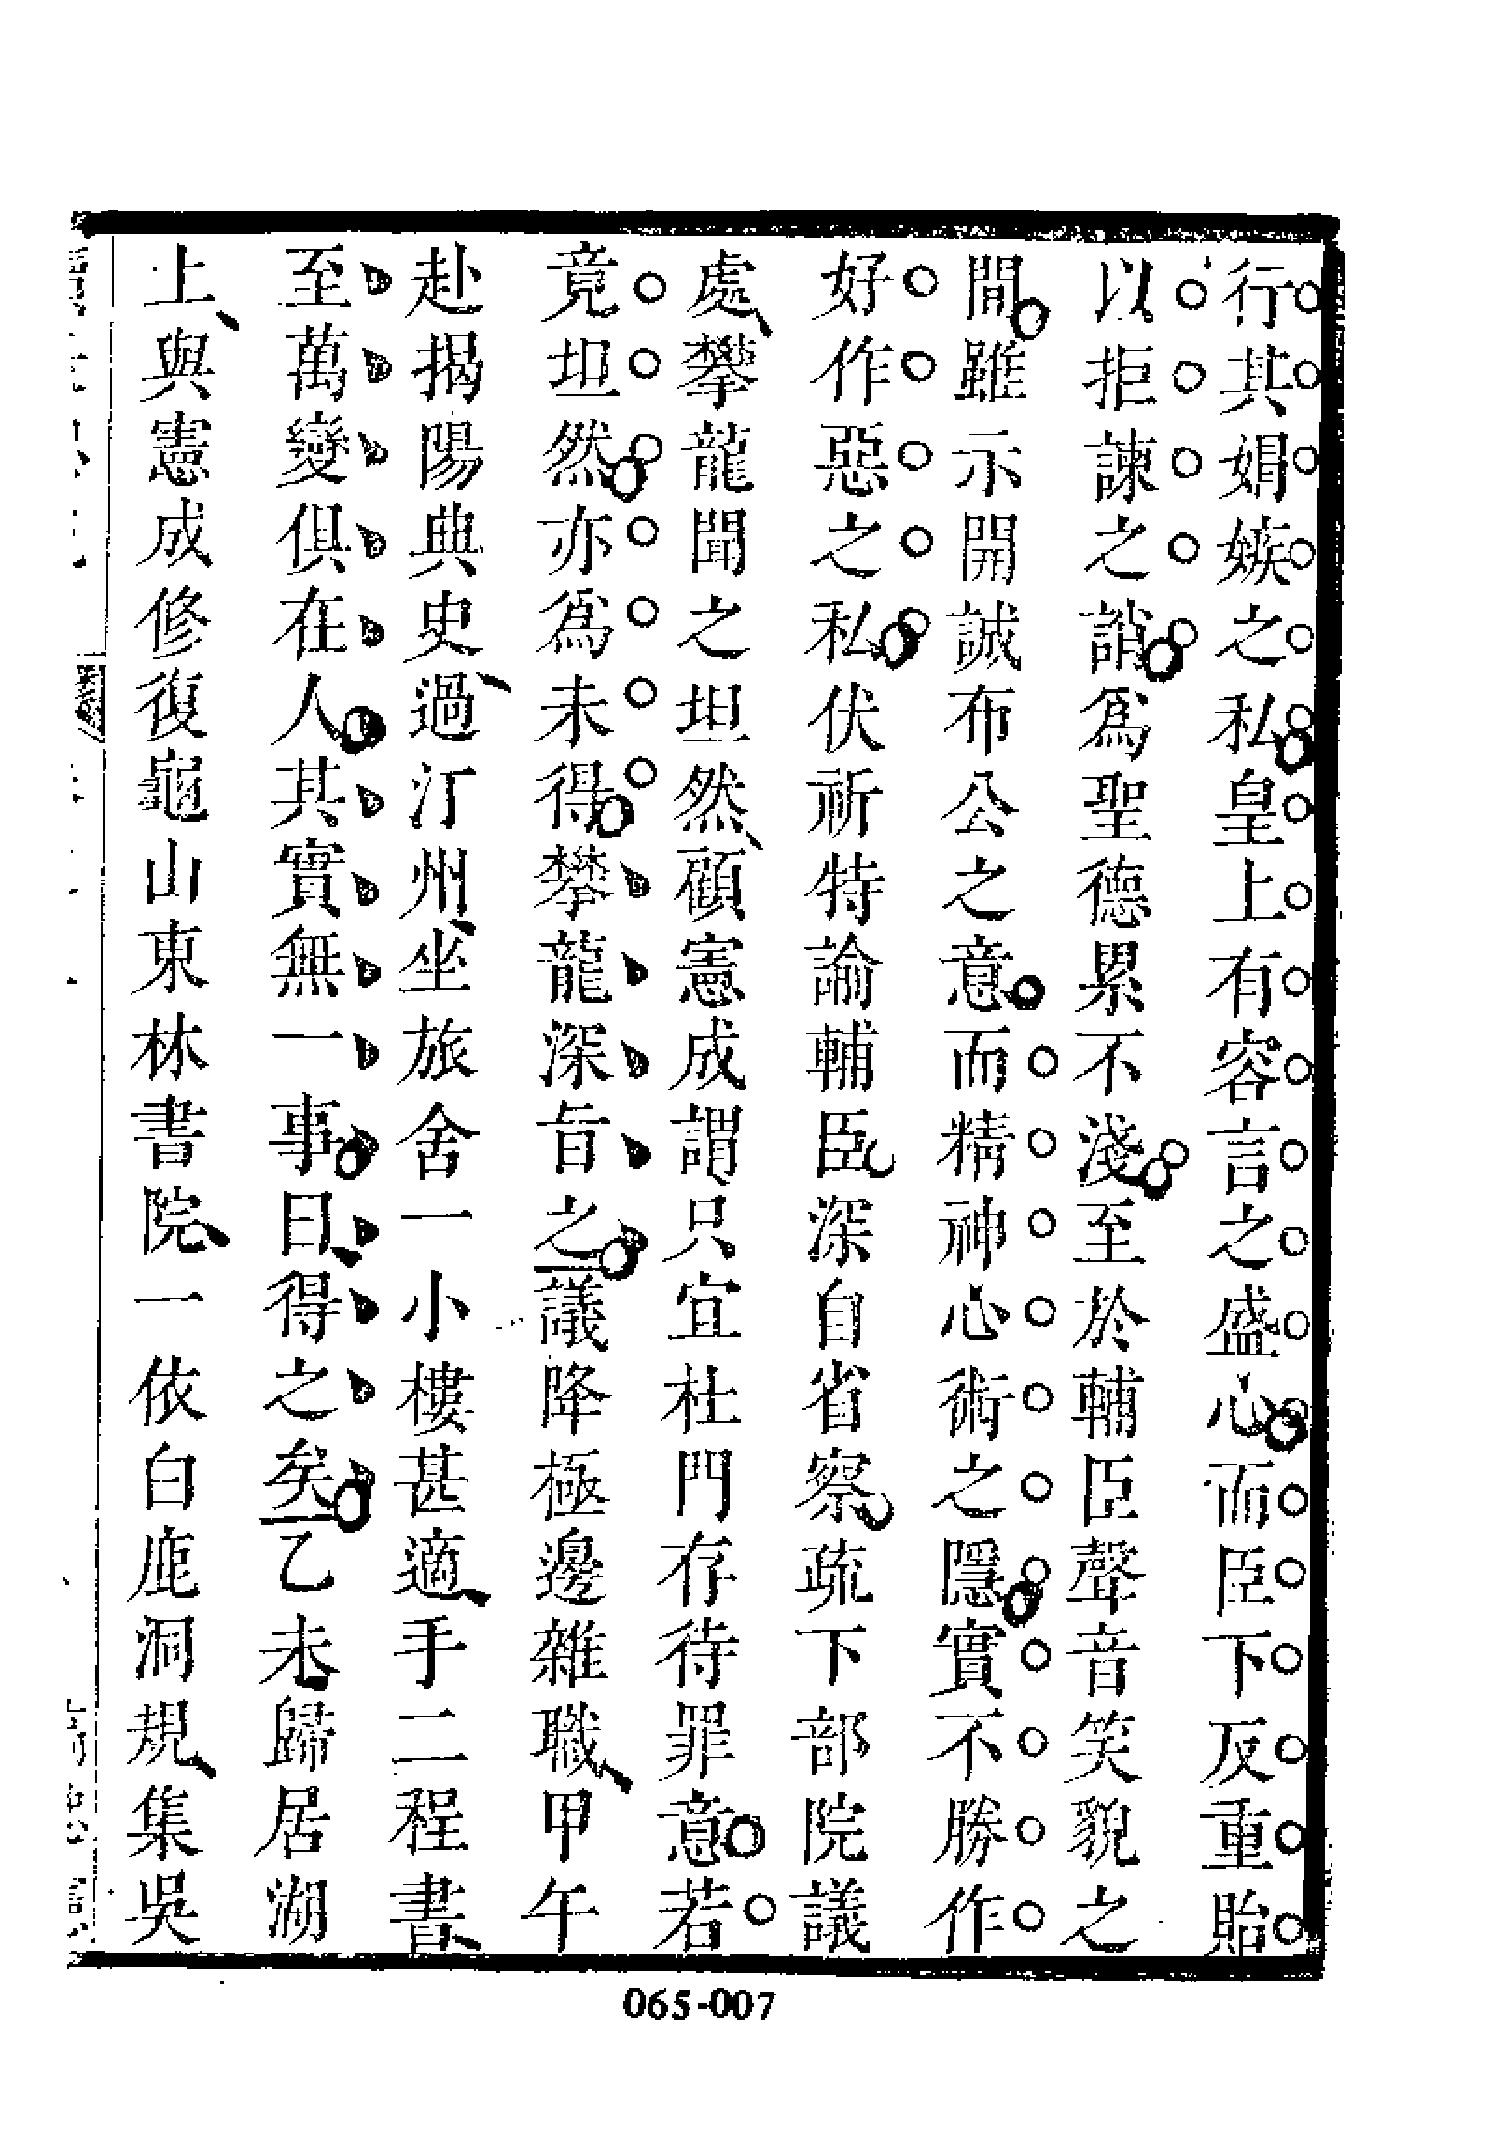 行其娼嫉之私皇上有容言之盛心而臣下反重貽
以拒諫之誚爲聖德累不淺至於輔臣聲音笑貌之
間雖示開誠布公之意而精神心術之隱實不勝作
好作惡之私伏祈特諭輔臣深自省察疏下部院議
處攀龍聞之坦然顧憲成謂只宜杜門存待罪意若
竟坦然亦爲未得攀龍深旨之議降極邊雜職甲午
赴揭陽典史過汀州坐旅舍一小樓甚適手二程書
至萬變俱在人其實無一事曰得之矣乙未歸居湖
上與憲成修復龜山東林書院一依白鹿洞規集吳
065-007